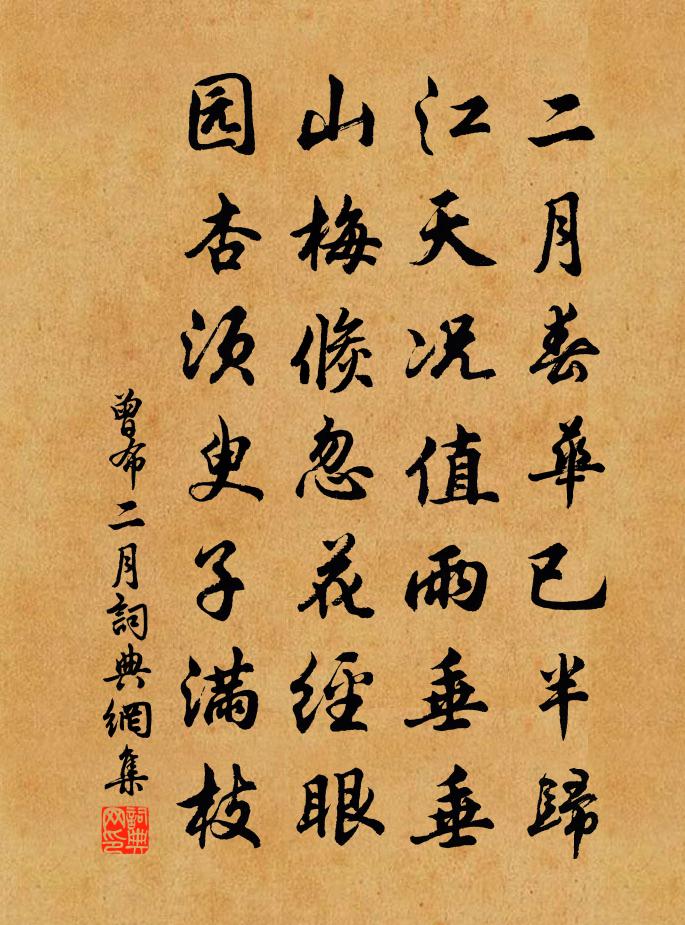 二月春華已半歸
江天况值雨垂垂
山梅倏忽花經眼
园杏须臾子满枝
曾布二月詞典網集
詞典
网印